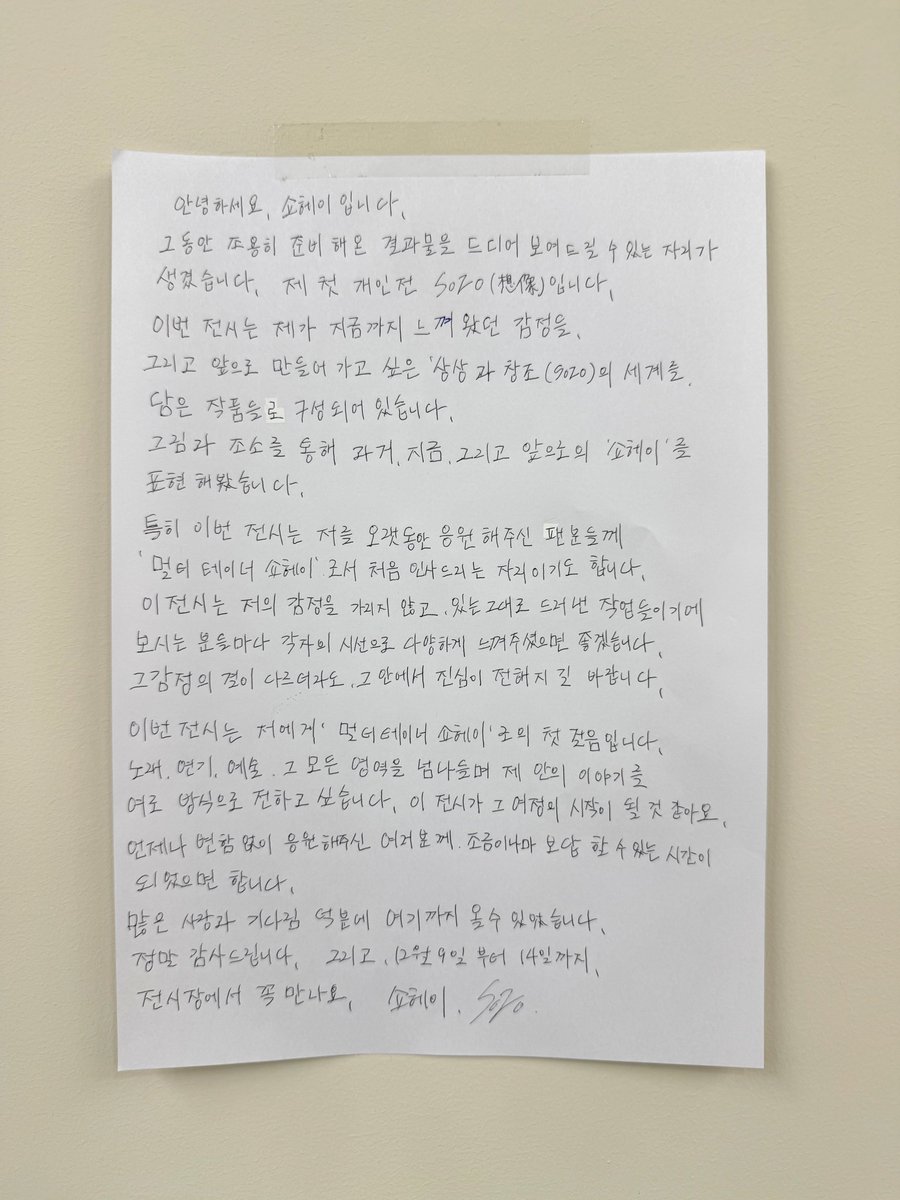 안녕하세요, 쇼헤이입니다.
그동안 조용히 준비해온 결과물을 드디어 보여드릴 수 있는 자리가
생겼습니다. 제 첫 개인전 SOZO(想像)입니다.
이번 전시는 제가 지금까지 느껴왔던 감정들,
그리고 앞으로 만들어 가고 싶은 '상상과 창조(SOZO)의 세계를
담은 작품들로 구성되어 있습니다.
그림과 조소를 통해 과거, 지금, 그리고 앞으로의 '쇼헤이'를
표현해봤습니다.
특히 이번 전시는 저를 오랫동안 응원해주신 팬분들께
'멀티테이너 쇼헤이'로서 처음 인사드리는 자리이기도 합니다.
이 전시는 저의 감정을 가리지 않고, 있는 그대로 드러낸 작업들이기에
보시는 분들마다 각자의 시선으로 다양하게 느껴주셨으면 좋겠습니다.
그 감정의 결이 다르더라도, 그 안에서 진심이 전해지길 바랍니다.
이번 전시는 저에게 '멀티테이너 쇼헤이'로의 첫 걸음입니다.
노래, 연기, 예술, 그 모든 영역을 넘나들며 제 안의 이야기를
여로 방식으로 전하고 싶습니다. 이 전시가 그 여정의 시작이 될 것 같아요.
언제나 변함없이 응원해주신 여러분께, 조금이나마 보답 할 수 있는 시간이
되었으면 합니다.
많은 사랑과 기다림 덕분에 여기까지 올 수 있었습니다.
정말 감사드립니다. 그리고, 12월 9일부터 14일까지,
전시장에서 꼭 만나요. 쇼헤이. SOZO.